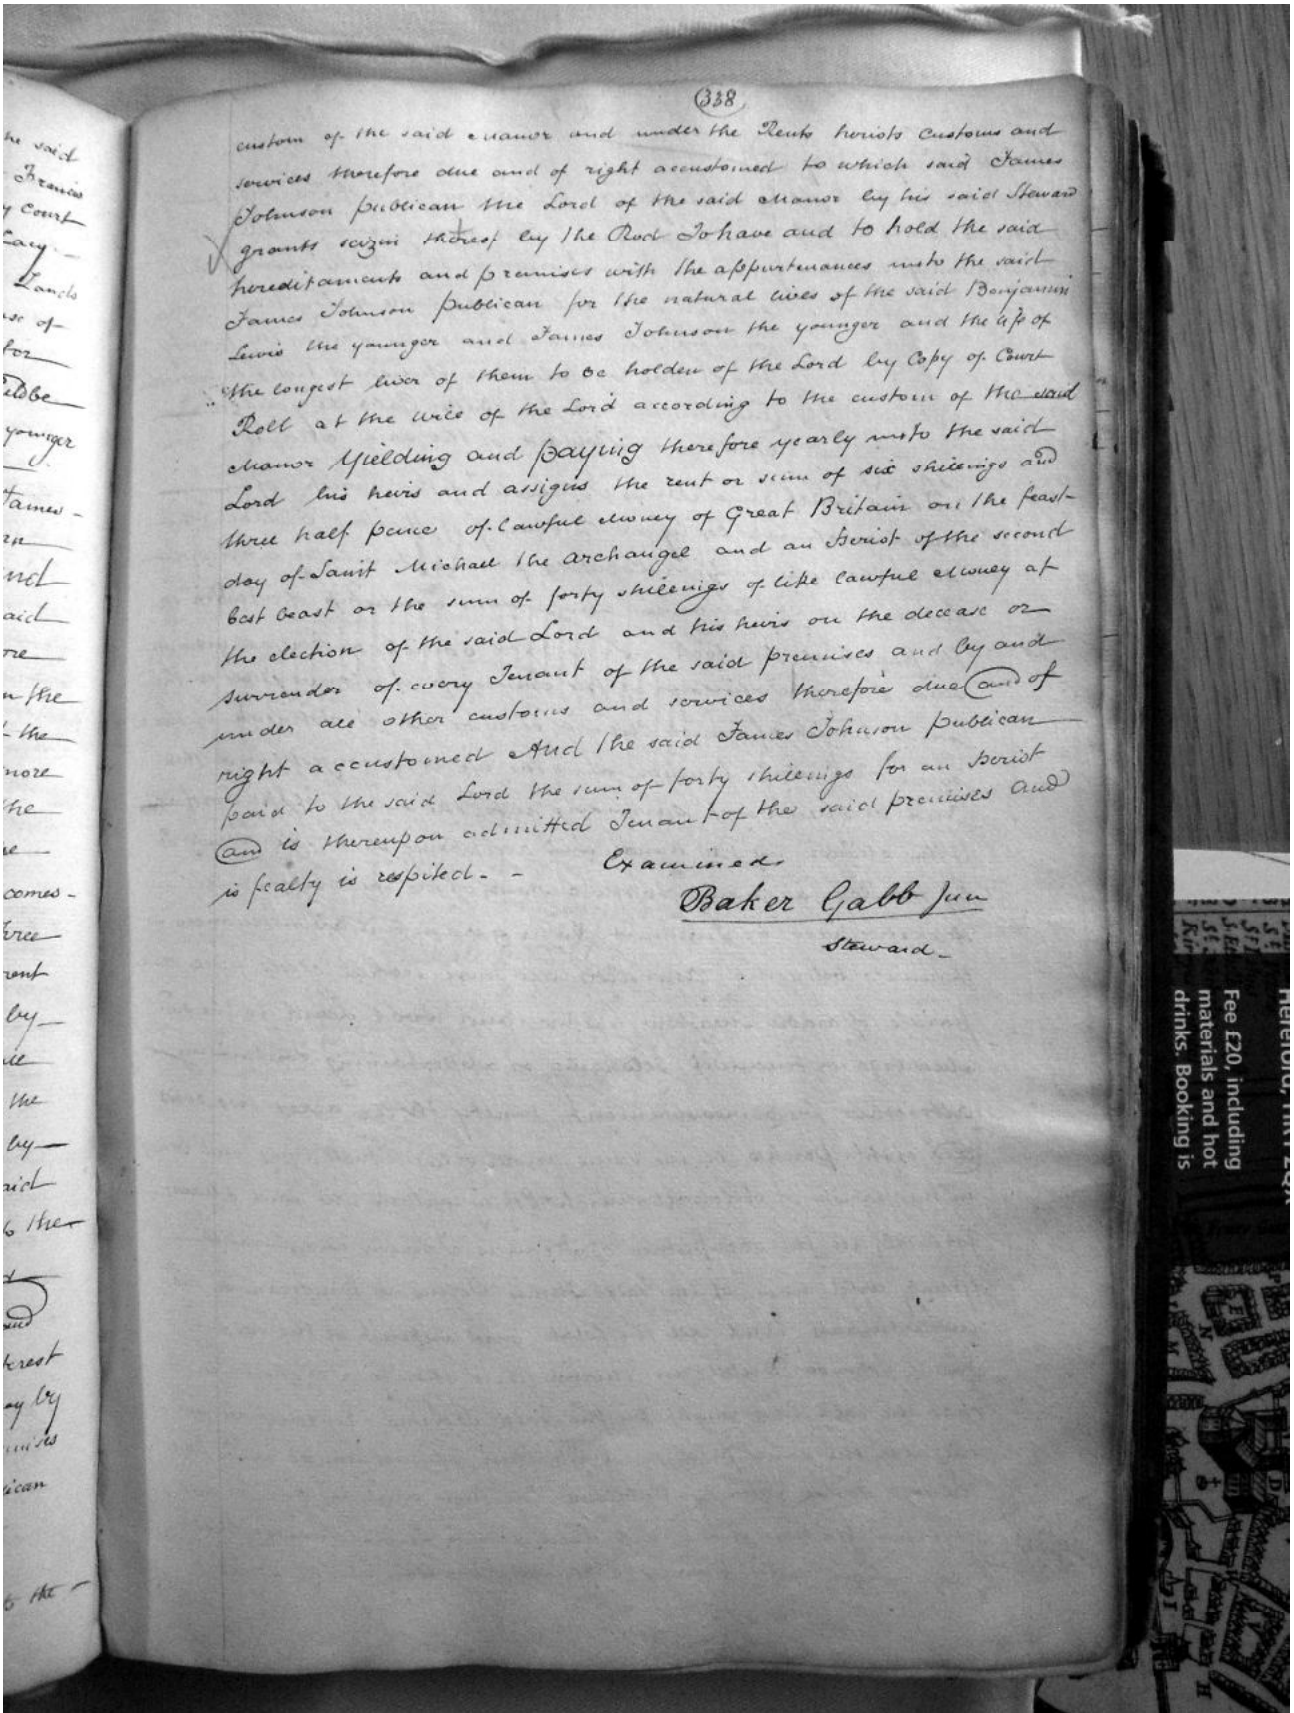 he said
Francis
y Court
Lacy
Lands
use of
for
younger
James
nd
aid
re
n the
the
more
the
comes
three
rent
by
the
by
aid
to the
and
terest
ay by
mises
lican
to the
338
custom of the said Manor and under the Rents heriots customs and
services therefore due and of right accustomed to which said James
Johnson publican the Lord of the said Manor by his said Steward
grants seizin thereof by the Rod To have and to hold the said
hereditaments and premises with the appurtenances unto the said
James Johnson publican for the natural lives of the said Benjamin
Lewis the younger and James Johnson the younger and the life of
the longest liver of them to be holden of the Lord by Copy of Court
Roll at the will of the Lord according to the custom of the said
Manor Yielding and paying therefore yearly unto the said
Lord his heirs and assigns the rent or sum of six shillings and
three half pence of lawful Money of Great Britain on the feast
day of Saint Michael the Archangel and an Heriot of the second
best beast or the sum of forty shillings of like lawful Money at
the election of the said Lord and his heirs on the decease or
surrender of every Tenant of the said premises and by and
under all other customs and services therefore due and of
right accustomed And the said James Johnson publican
paid to the said Lord the sum of forty shillings for an Heriot
and is thereupon admitted Tenant of the said premises and
is fealty is respited.
Examined
Baker Gabb Jun
Steward
Hereford, HR1 2QX
Fee £20, including
materials and hot
drinks. Booking is